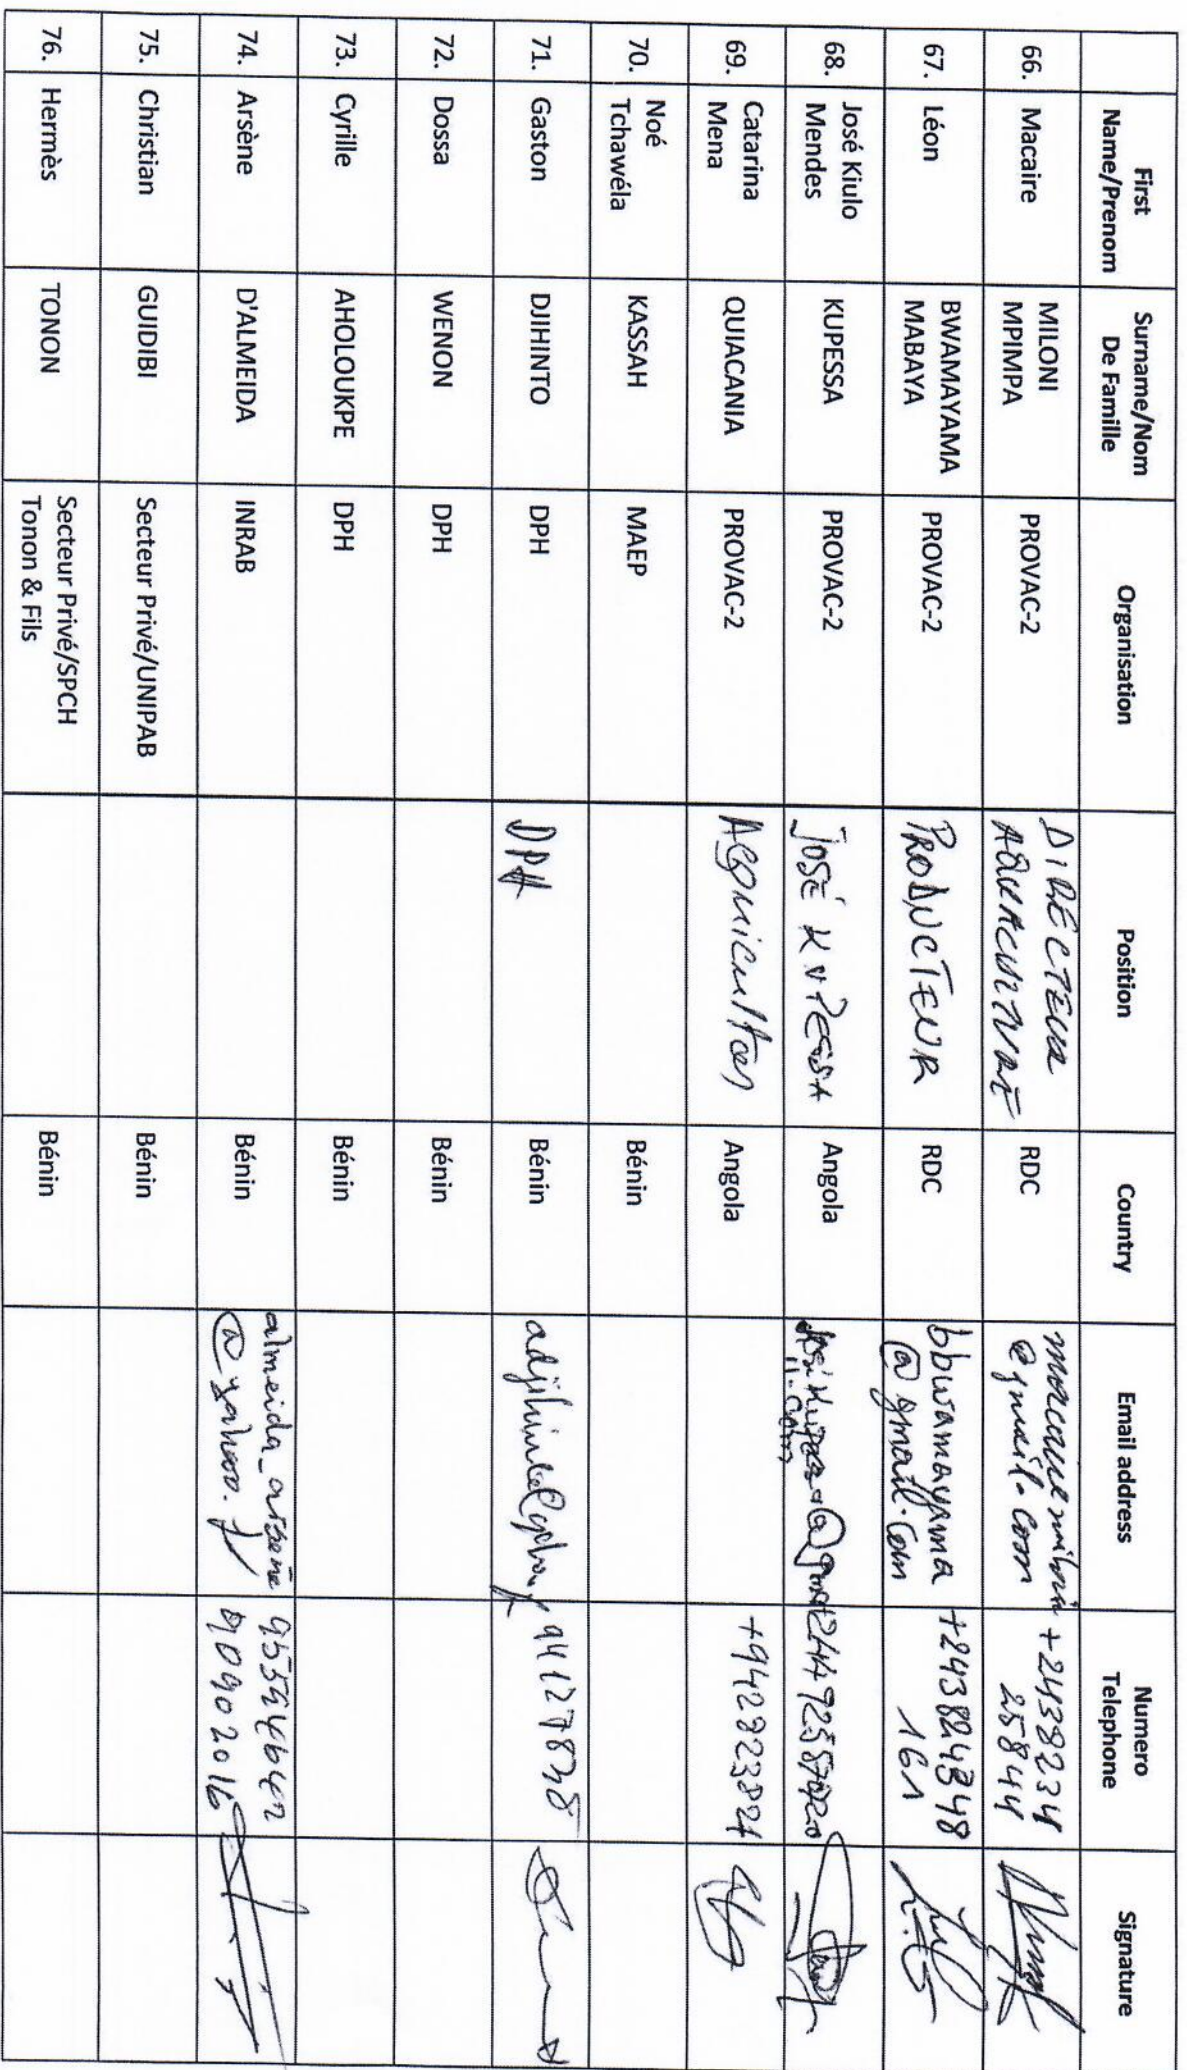 First Name/Prenom Surname/Nom De Famille Organisation Position Country Email address Numero Telephone Signature
66. Macaire MILONI MPIMPA PROVAC-2 DIRECTEUR AQUACULTURE RDC @gmail.com +2438234 25844
67. Léon BWAMAYAMA MABAYA PROVAC-2 PRODUCTEUR RDC bbwamayama @gmail.com +243824348 161
68. José Kiulo Mendes KUPESSA PROVAC-2 JOSÉ KUPESSA Angola
69. Catarina Mena QUIACANIA PROVAC-2 Angola +942223824
70. Noé Tchawéla KASSAH MAEP Bénin
71. Gaston DJIHINTO DPH DPH Bénin
72. Dossa WENON DPH Bénin
73. Cyrille AHOLOUKPE DPH Bénin
74. Arsène D'ALMEIDA INRAB Bénin almeida_arsene @yahoo.fr 90902016
75. Christian GUIDIBI Secteur Privé/UNIPAB Bénin
76. Hermès TONON Secteur Privé/SPCH Tonon & Fils Bénin